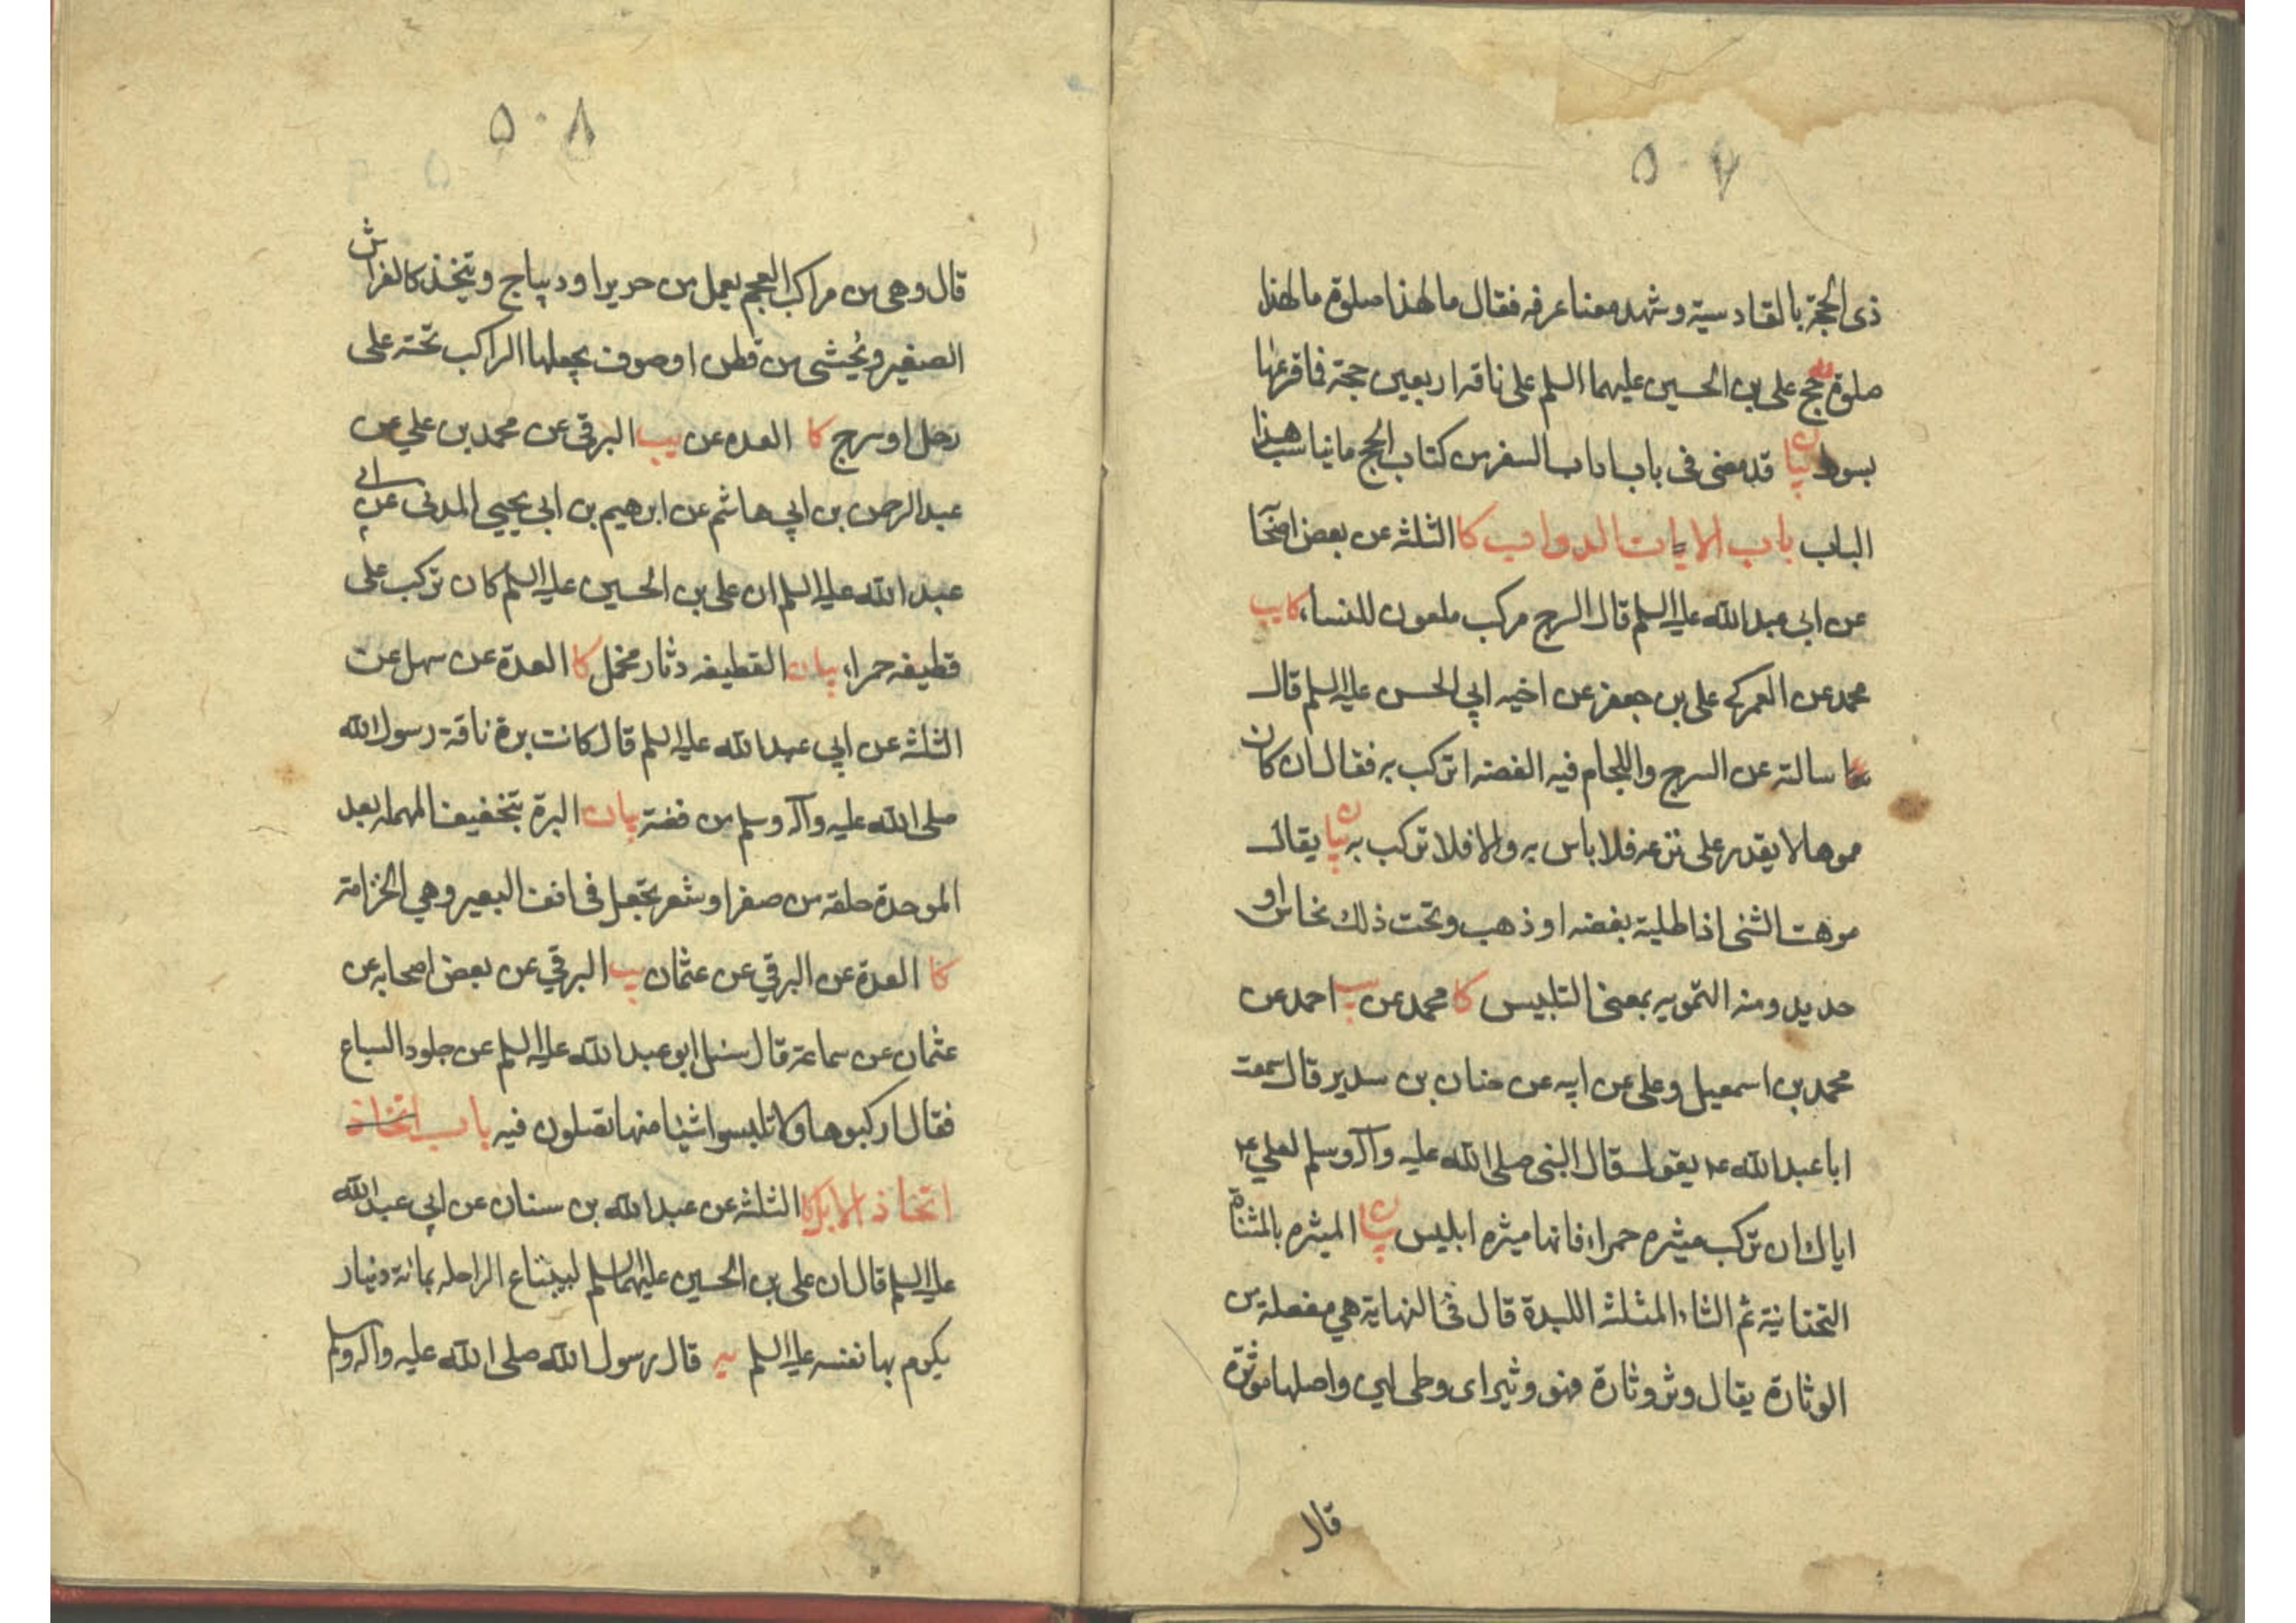 ٥٠٧
ذى الحجة بالقادسية وشهد معنا عرفه فقال ما لهذا صلوة ما لهذا
صلوة حج على بن الحسين عليهما السلم على ناقه اربعين حجة فاقرعها
بسوط بيان قد مضى فى باب اداب السفر من كتاب الحج ما يناسب هذا
الباب باب الايات الدواب كا الثلثه عن بعض اصحآ
عن ابى عبد الله عليه السلم قال السرج مركب ملعون للنساء كا يب
محمد عن العمركى على بن جعفر عن اخيه ابي الحسن عليه السلم قال
سالته عن السرج واللجام فيه الفضه اتركب به فقال ان كان
مموها لا يقدر على نزعه فلا باس به والا فلا تركب به بيان يقال
موهت الشئ اذا طليته بفضه او ذهب وتحت ذلك نحاس او
حديد ومنه التمويه بمعنى التلبيس كا محمد عن يب احمد عن
محمد بن اسمعيل وعلى عن ابيه عن حنان بن سدير قال سمعت
ابا عبد الله ع يقول قال النبى صلى الله عليه وآله وسلم لعلي ع
اياك ان تركب ميثره حمراء فانها ميثره ابليس بيان الميثره بالمثناة
التحتانية ثم الثاء المثلثه اللبدة قال فى النهاية هي مفعلة من
الوثارة يقال وثر وثارة فهو وثير اى وطى لين واصلها موثرة
قال
٥٠٨
قال وهى من مراكب العجم يعمل من حرير او ديباج ويتخذ كالفراش
الصغير ويُحشى من قطن او صوف يجعلها الراكب تحته على
رحل او سرج كا العده عن يب البرقى عن محمد بن علي عن
عبد الرحمن بن ابي هاشم عن ابرهيم بن ابى يحيى المدنى عن ابى
عبد الله عليه السلم ان على بن الحسين عليه السلم كان تركب على
قطيفه حمراء بيان القطيفه دثار مخمل كا العدة عن سهل عن
الثلثه عن ابي عبد الله عليه السلم قال كانت برة ناقة رسول الله
صلى الله عليه وآله وسلم من فضة بيان البرة بتخفيف المهمله بعد
الموحدة حلقه من صفر او شعر تجعل فى انف البعير وهي الخزامة
كا العدة عن البرقي عن عثمان يب البرقي عن بعض اصحابه عن
عثمان عن سماعة قال سئل ابو عبد الله عليه السلم عن جلود السباع
فقال اركبوها ولا تلبسوا شيئا منها تصلون فيه باب اتخاذ
اتخاذ الابل كا الثلثه عن عبد الله بن سنان عن ابي عبد الله
عليه السلم قال ان على بن الحسين عليهما السلم ليبتاع الراحله بمائة دينار
يكرم بها نفسه عليه السلم يه قال رسول الله صلى الله عليه وآله وسلم